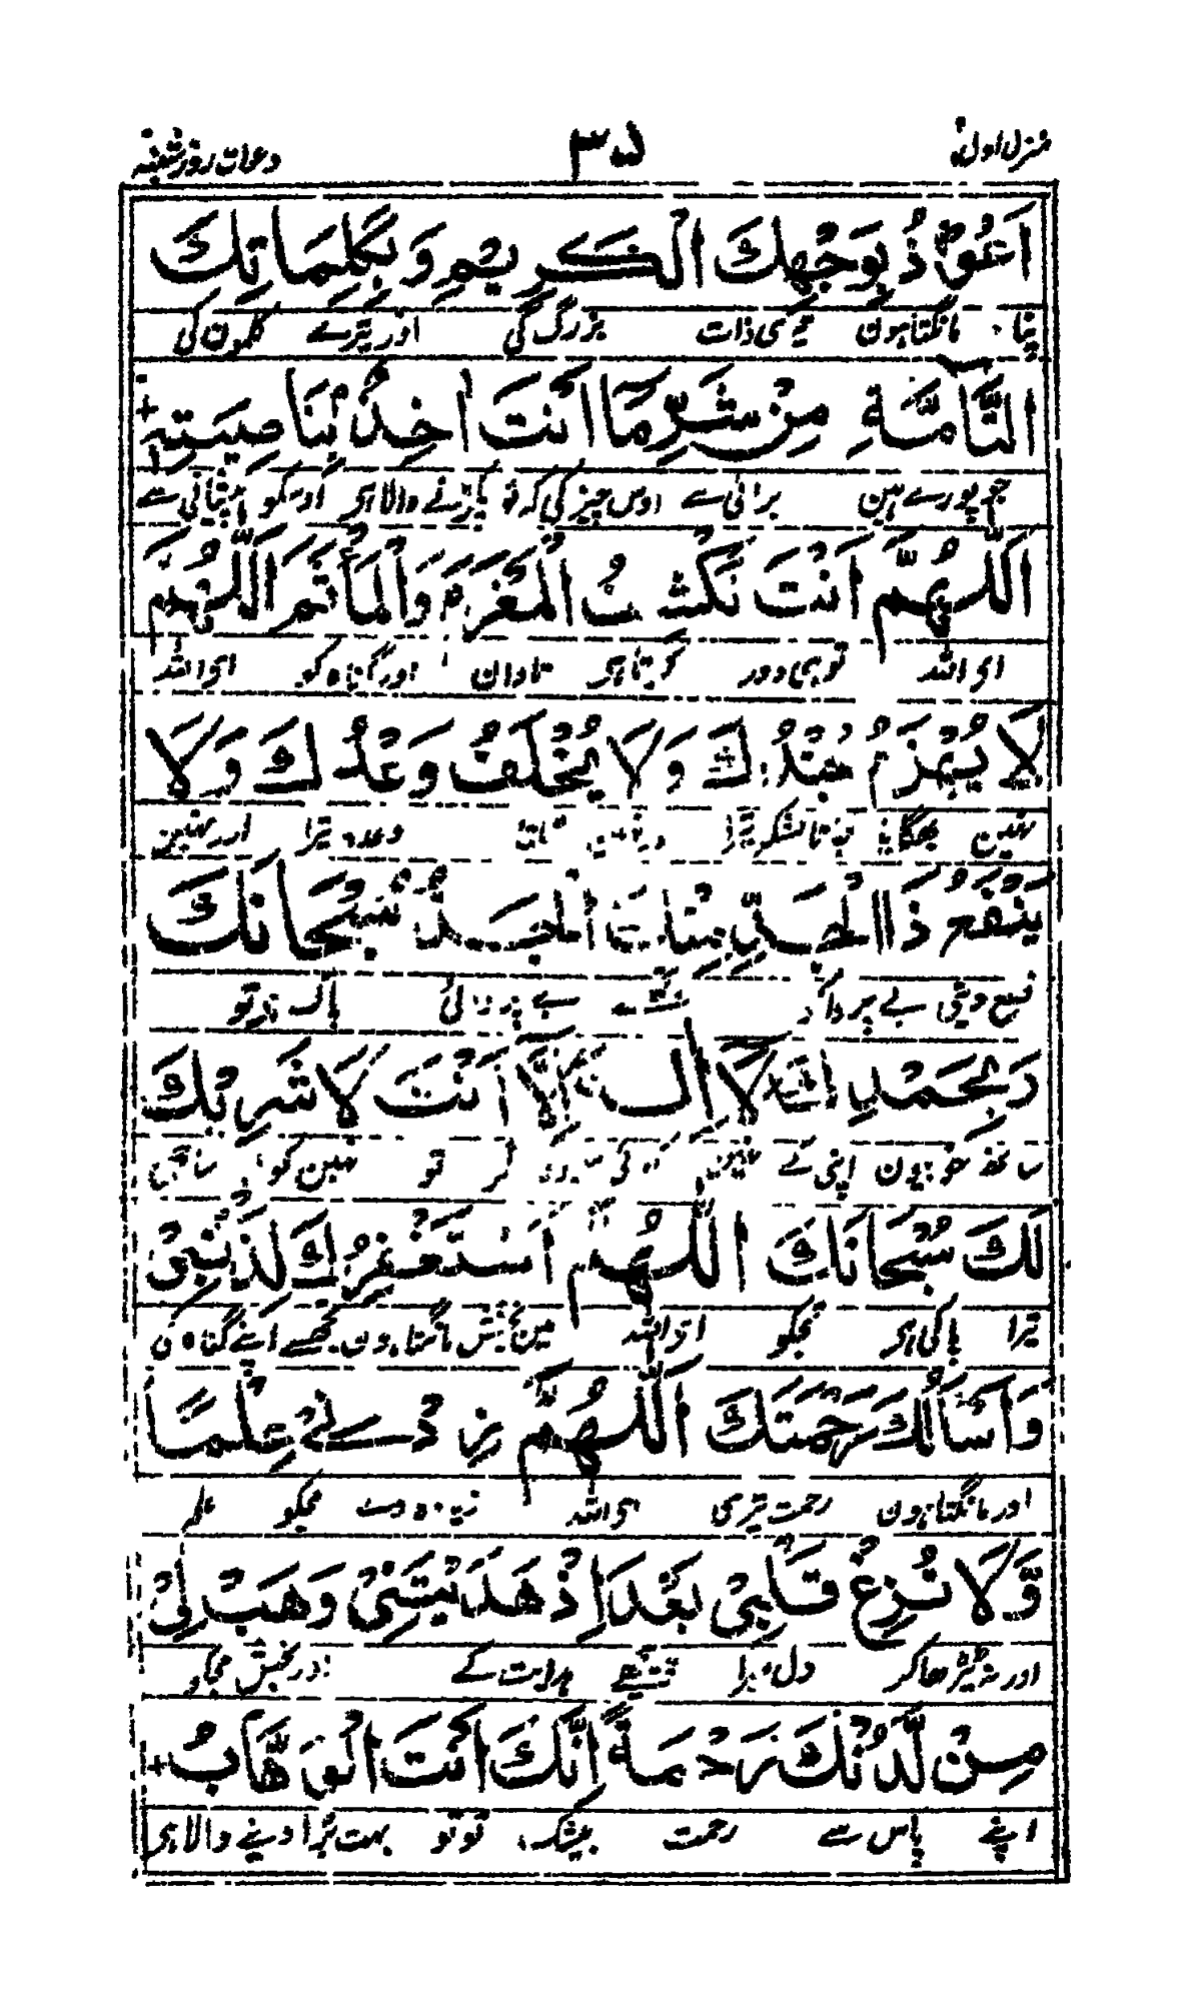 منزل اول ۳۵ دعوات روز شنبہ
اَعُوْذُ بِوَجْهِكَ الْكَرِيْمِ وَبِكَلِمَاتِكَ
مانگتا ہون تیری ذات بزرگ کی اور تیرے کلمون کی
التَّآمَّةِ مِنْ شَرِّ مَا اَنْتَ اٰخِذٌ بِنَاصِيَتِهٖ
جو پورے ہین برائی سے اوس چیز کی کہ تو پکڑنے والا ہی اوسکو پیشانی سے
اَللّٰهُمَّ اَنْتَ تَكْشِفُ الْمَغْرَمَ وَالْمَأْثَمَ اَللّٰهُمَّ
ای اللہ تو ہی دور کرتا ہی تاوان اور گناہ کو ای اللہ
لَا يُهْزَمُ جُنْدُكَ وَلَا يُخْلَفُ وَعْدُكَ وَلَا
نہین بھگایا تا لشکر تیرا وعدہ تیرا اور نہین
يَنْفَعُ ذَا الْجَدِّ مِنْكَ الْجَدُّ سُبْحَانَكَ
نفع دیتی بے پروا کو سے بے پروائی پاک ہی تو
وَبِحَمْدِكَ لَا اِلٰهَ اِلَّا اَنْتَ لَا شَرِيْكَ
ساتھ خوبیون اپنی کے نہین کوئی مگر تو نہین کوئی
لَكَ سُبْحَانَكَ اَللّٰهُمَّ اَسْتَغْفِرُكَ لِذَنْبِيْ
تیرا پاکی ہی تجکو ای اللہ مین بخشش مانگتا ہون تجھسے اپنے گناہ کی
وَاَسْأَلُكَ رَحْمَتَكَ اَللّٰهُمَّ زِدْنِيْ عِلْمًا
اور مانگتا ہون رحمت تیری ای اللہ زیادہ دے مجکو علم
وَّلَا تُزِغْ قَلْبِيْ بَعْدَ اِذْ هَدَيْتَنِيْ وَهَبْ لِيْ
اور نہ ٹیڑھا کر دل میرا پیچھے ہدایت کے اور بخش مجکو
مِنْ لَّدُنْكَ رَحْمَةً اِنَّكَ اَنْتَ الْوَهَّابُ
اپنے پاس سے رحمت بیشک تو تو بہت بڑا دینے والا ہی